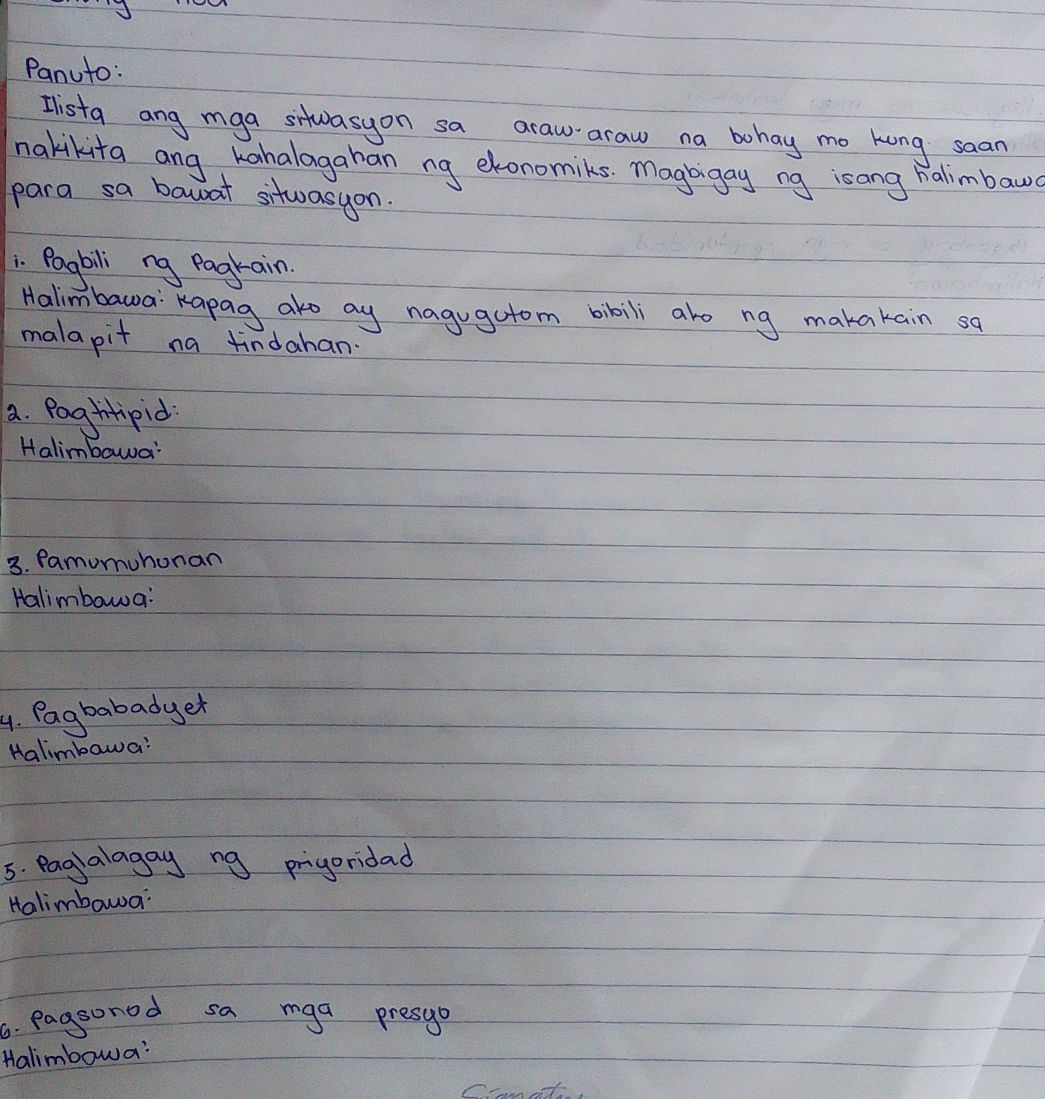 Panuto:
Ilista ang mga sitwasyon sa araw-araw na buhay mo kung saan
nakikita ang kahalagahan ng ekonomiks. Magbigay ng isang halimbawa
para sa bawat sitwasyon.
1. Pagbili ng Pagkain.
Halimbawa: Kapag ako ay nagugutom bibili ako ng makakain sa
malapit na tindahan.
2. Pagtitipid:
Halimbawa:
3. Pamumuhunan
Halimbawa:
4. Pagbabadyet
Halimbawa:
5. Paglalagay ng priyoridad
Halimbawa:
6. Pagsunod sa mga presyo
Halimbawa: